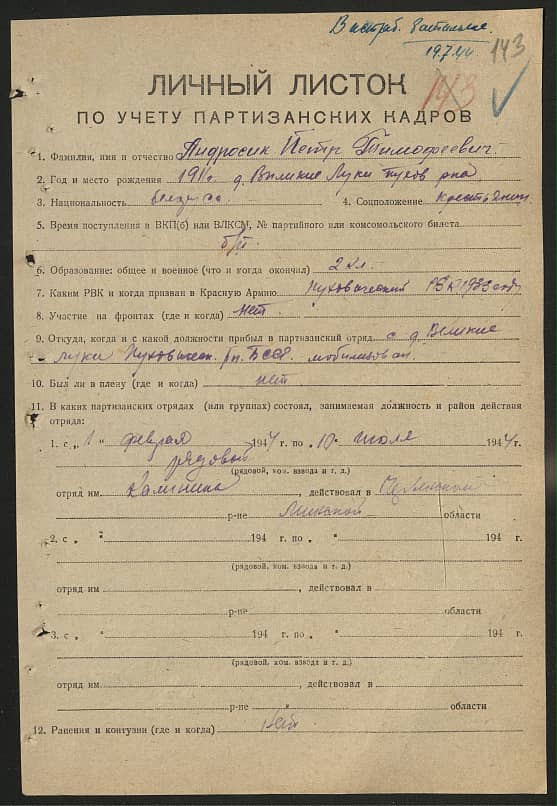 В истреб. батальоне
19.7.44
143
143
ЛИЧНЫЙ ЛИСТОК
ПО УЧЕТУ ПАРТИЗАНСКИХ КАДРОВ
1. Фамилия, имя и отчество Андросик Петр Тимофеевич.
2. Год и место рождения д. Великие Луки Пухов. р-на
3. Национальность белорус 4. Соцположение крестьянин
5. Время поступления в ВКП(б) или ВЛКСМ, № партийного или комсомольского билета
б/п
6. Образование: общее и военное (что и когда окончил) 2 кл.
7. Каким РВК и когда призван в Красную Армию Пуховический РВК 1933 году
8. Участие на фронтах (где и когда) нет
9. Откуда, когда и с какой должности прибыл в партизанский отряд с д. Великие
Луки Пуховическ. рн. БССР. мобилизован.
10. Был ли в плену (где и когда) нет
11. В каких партизанских отрядах (или группах) состоял, занимаемая должность и район действия
отряда:
1. с „1" февраля 1944 г. по „10" июля 1944 г.
рядовой
(рядовой, ком. взвода и т. д.)
отряд им. Калинина, действовал в
р-не Минской области
2. с „ " 194 г. по „ " 194 г.
(рядовой, ком. взвода и т. д.)
отряд им , действовал в
р-не области
3. с „ " 194 г. по „ " 194 г.
(рядовой, ком. взвода и т. д.)
отряд им , действовал в
р-не области
12. Ранения и контузии (где и когда) нет